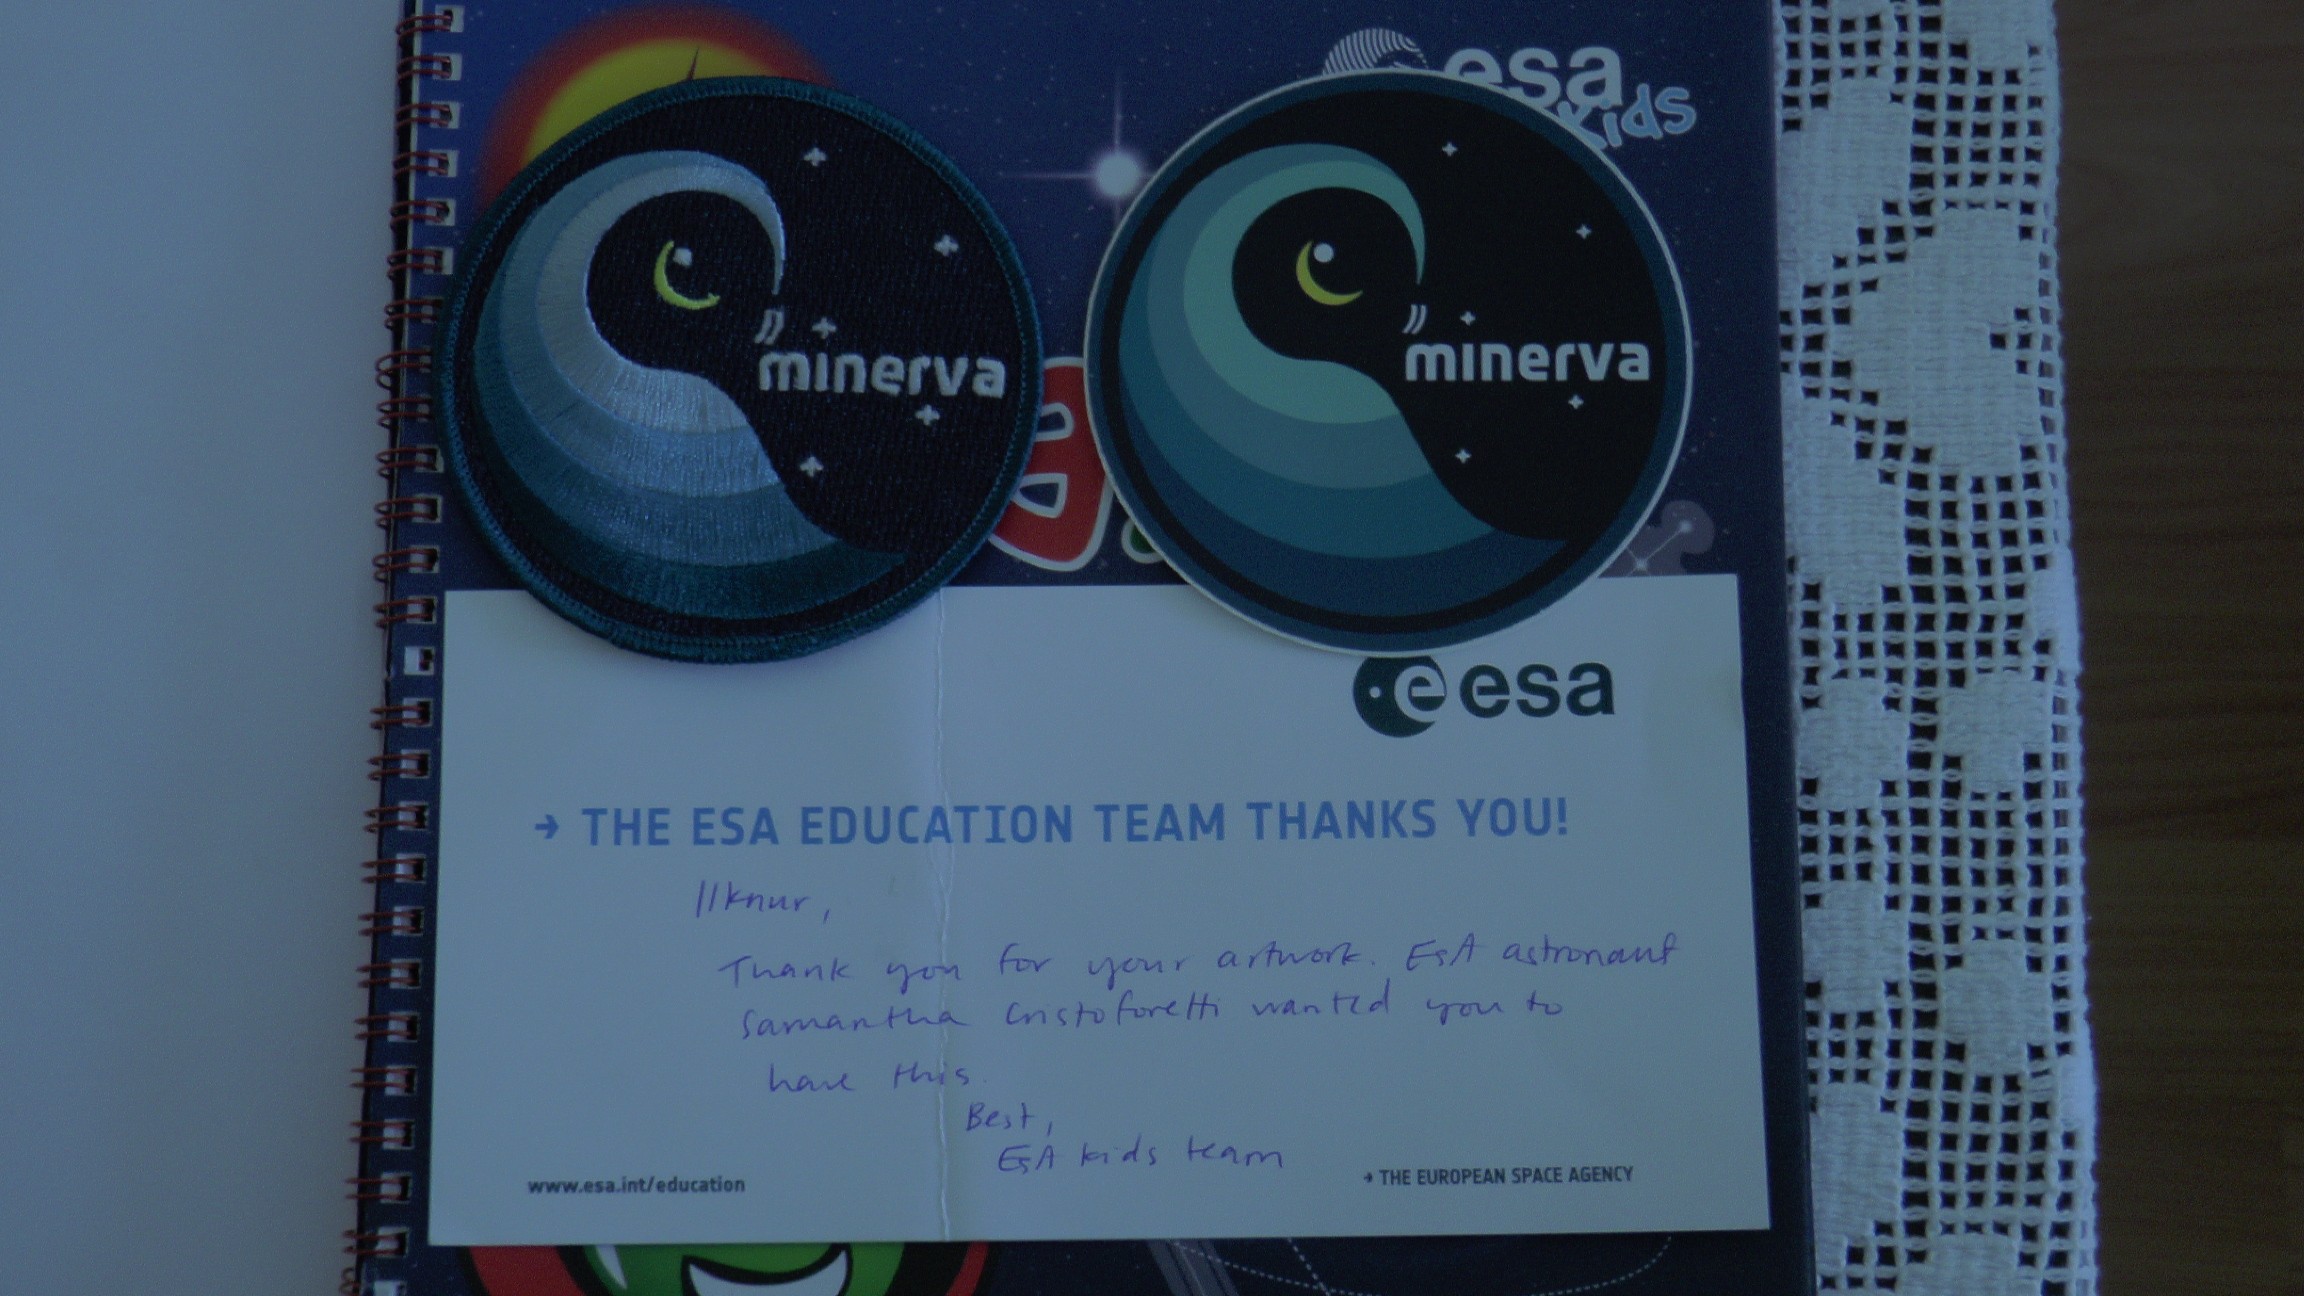 esa
kids
minerva
minerva
esa
→ THE ESA EDUCATION TEAM THANKS YOU!
Ilknur,
Thank you for your artwork. ESA astronaut
Samantha Cristoforetti wanted you to
have this.
Best,
ESA kids team
www.esa.int/education
→ THE EUROPEAN SPACE AGENCY